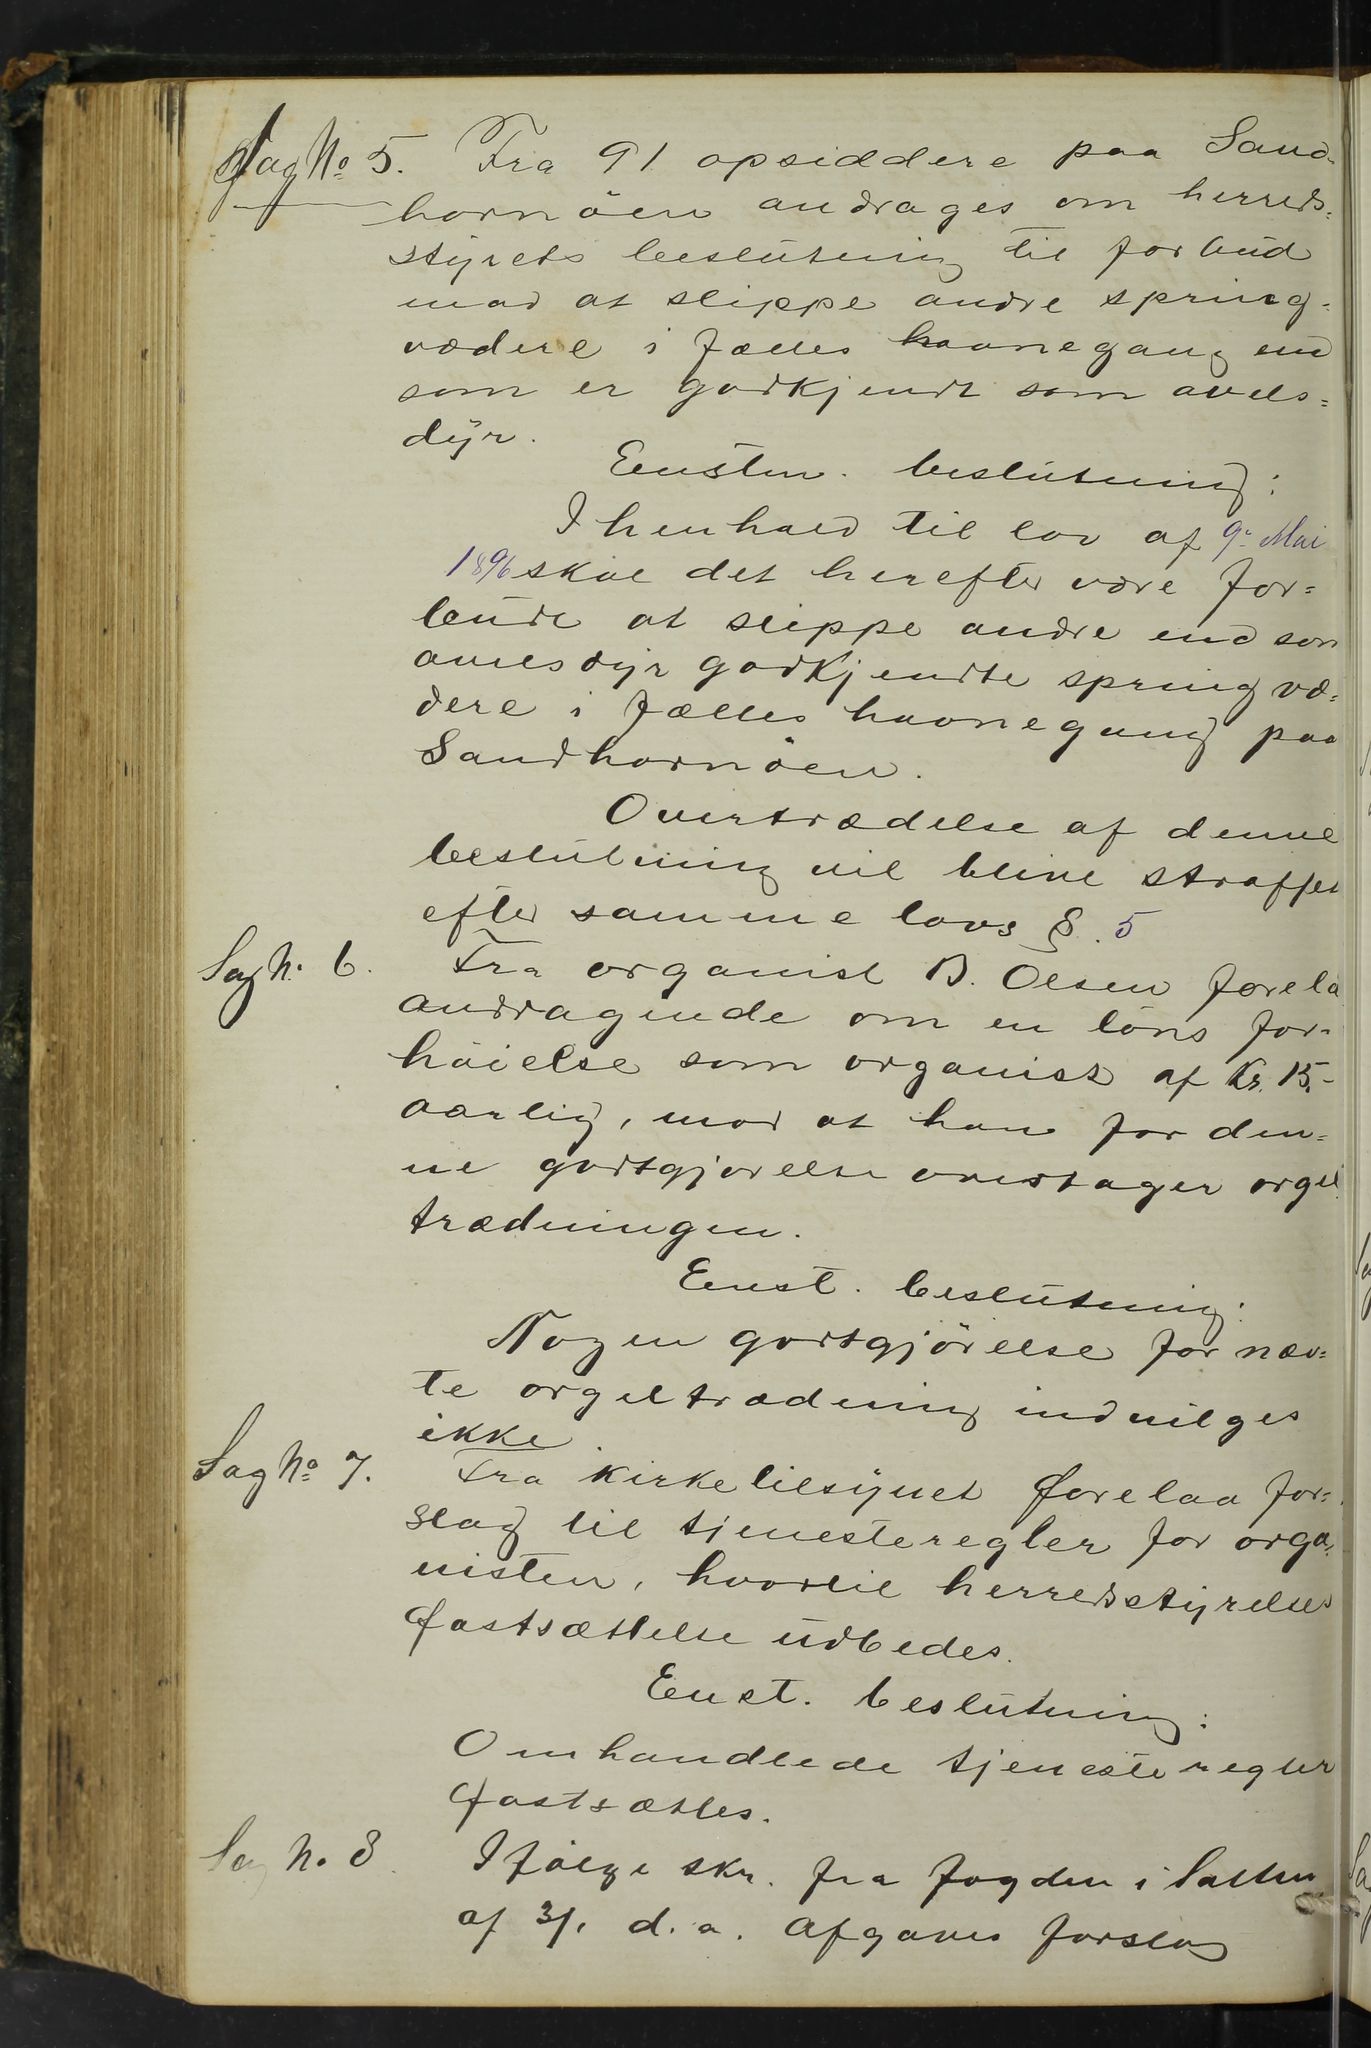 Sag No 5. Fra 91 opsiddere paa Sand-
hornöen andrages om herreds-
styrets beslutning til forbud
mod at slippe andre spring-
vædere i fælles havnegang end
som er godkjendt som avels-
dyr.
Eenstem. beslutning:
I henhold til lov af 9de Mai
1896 skal det herefter være for-
budt at slippe andre end som
avlesdyr godkjendte spring væ-
dere i fælles havnegang paa
Sandhornöen.
Overtrædelse af denne
beslutning vil blive straffet
efter samme lovs §. 5
Sag N. 6. Fra organist B. Olsen forelå
andragende om en löns for-
höielse som organist af Kr. 15.-
aarlig, mod at han for den-
ne godtgjorelse overtager orgel
trædningen.
Eenst. beslutning:
Nogen godtgjörelse for næv-
te orgeltrædning indvilges
ikke.
Sag No 7. Fra kirketilsynet forelaa for-
slag til tjenesteregler for orga-
nisten, hvortil herredsstyrelses
fastsættelse udbedes.
Eenst. beslutning:
Omhandlede tjenesteregler
fastsættes.
Sag N. 8. Ifölge skr. fra fogden i Salten
af 3/1 d. a. afgaves forslag